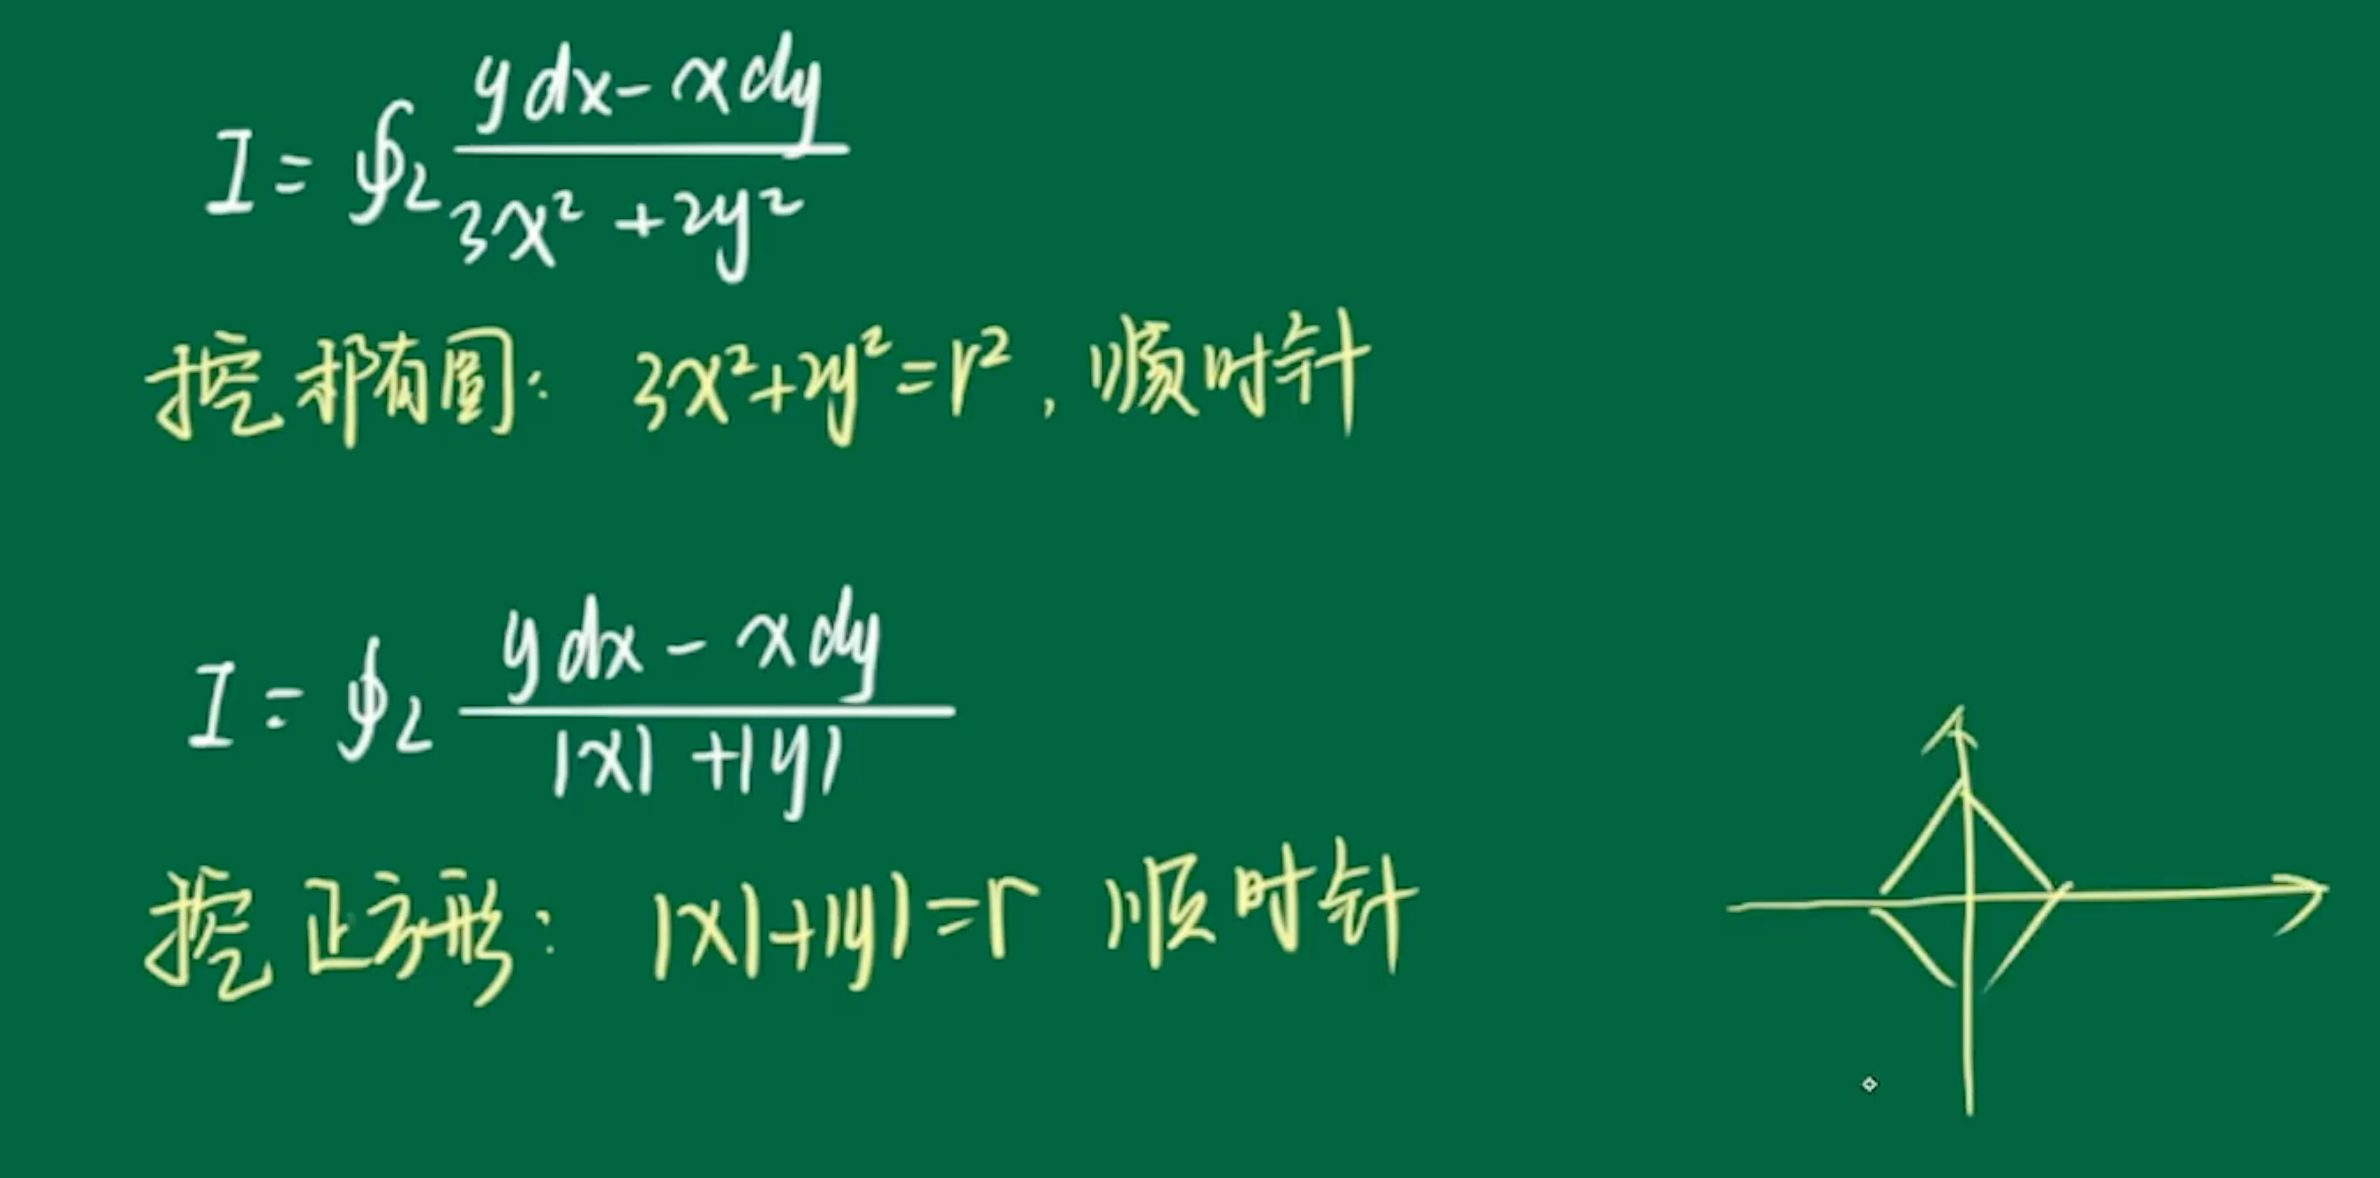 I = ∮L (ydx - xdy)/(3x² + 2y²)
挖椭圆: 3x²+2y²=r², 顺时针
I = ∮L (ydx - xdy)/(|x| + |y|)
挖正方形: |x|+|y|=r 顺时针